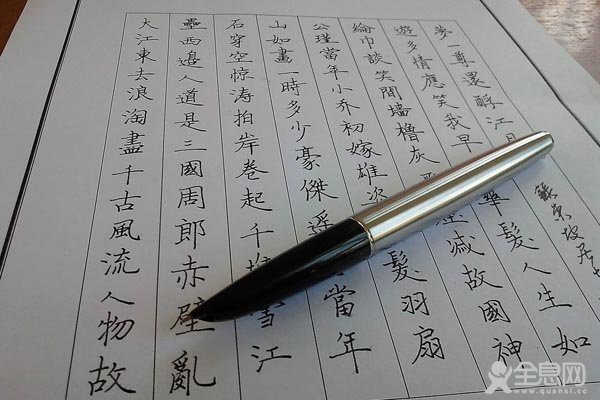 大江東去浪淘盡千古風流人物故
壘西邊人道是三國周郎赤壁亂
石穿空惊涛拍岸卷起千堆雪江
山如畫一時多少豪傑遥當年
公瑾當年小乔初嫁雄姿髮羽扇
綸巾談笑間墻櫓灰滅故國神
遊多情應笑我早華髮人生如
夢一尊還酹江月
全息网
www.quanxi.cc